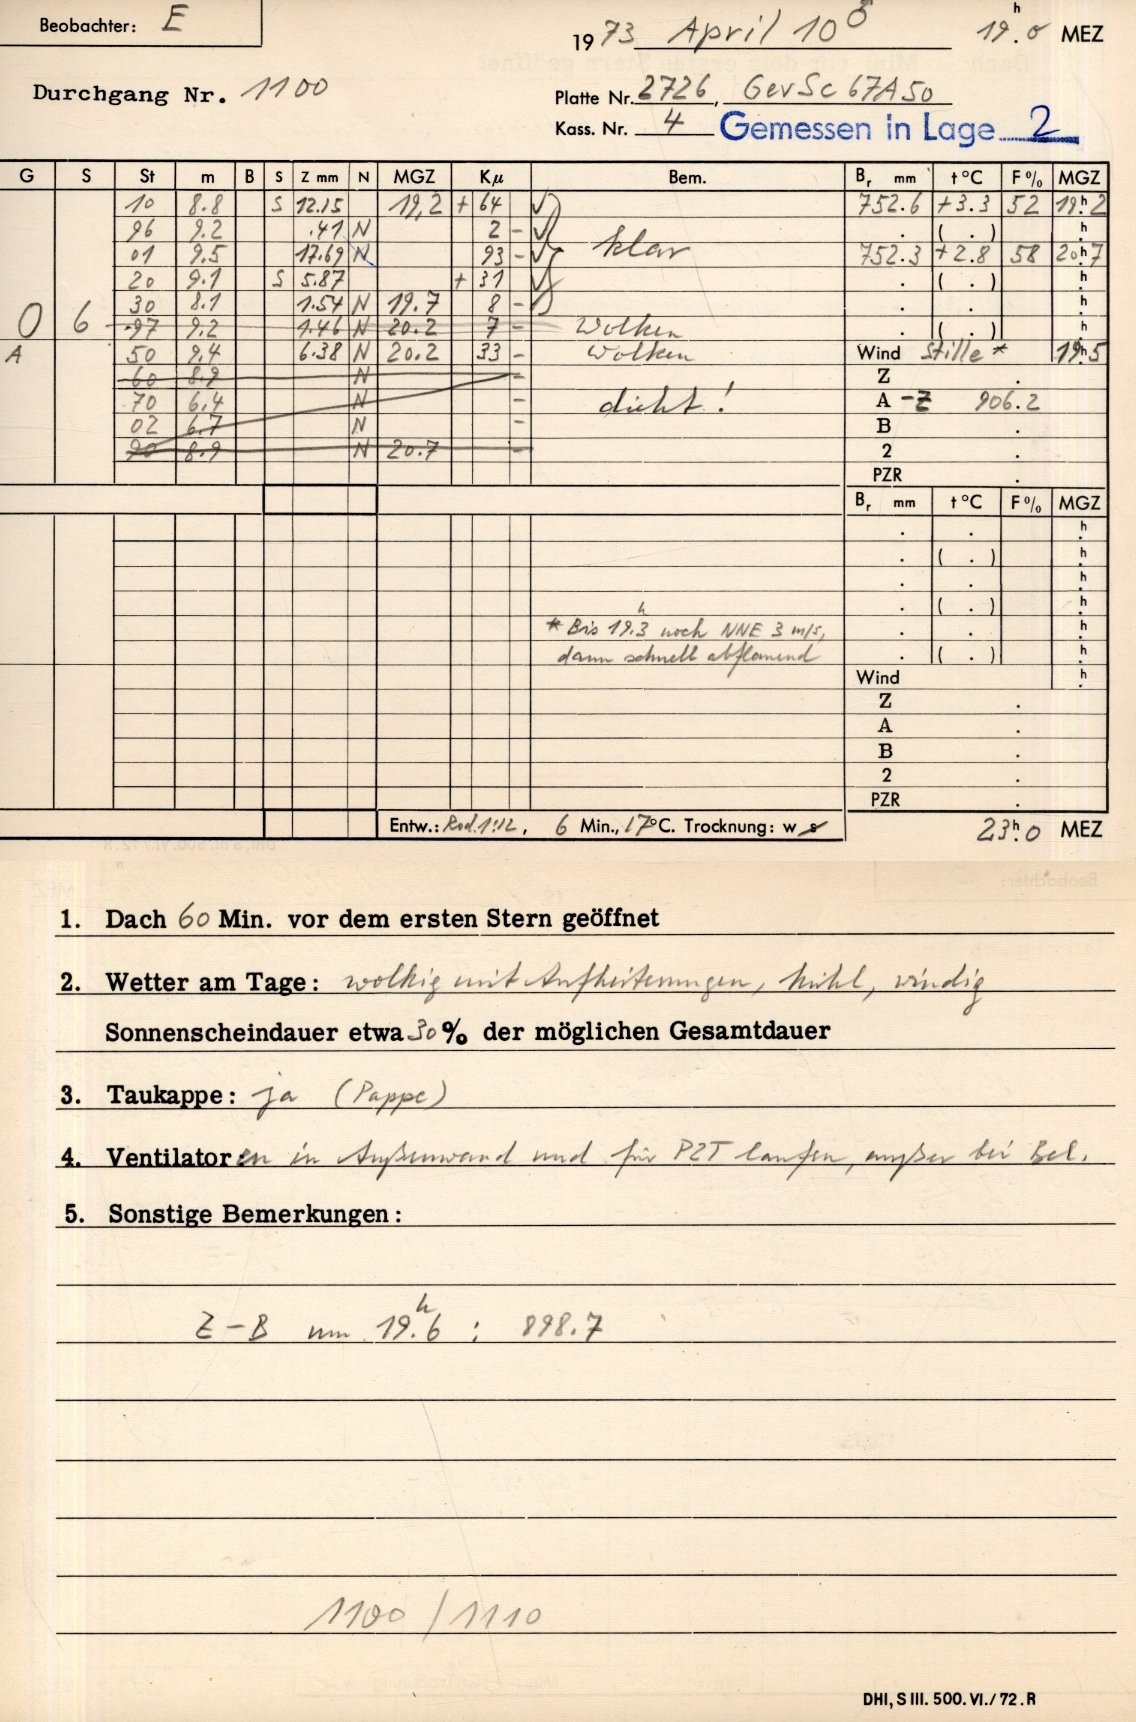 Beobachter: E
1973 April 10 19ʰ.0 MEZ
Durchgang Nr. 1100
Platte Nr. 2726, GevSc 67A50
Kass. Nr. 4 Gemessen in Lage 2
G S St m B S Z mm N MGZ Kμ Bem. Bᵣ mm t °C F % MGZ
10 8.8 S 12.15 19,2 + 64 752.6 +3.3 52 19ʰ.2
96 9.2 .41 N 2 - . ( . ) ʰ.
01 9.5 17.69 N 93 - klar 752.3 +2.8 58 20ʰ.7
20 9.1 S 5.87 + 31 . ( . ) ʰ.
30 8.1 1.54 N 19.7 8 - . . ʰ.
O 6 97 9.2 1.46 N 20.2 7 - Wolken . ( . ) ʰ.
A 50 9.4 6.38 N 20.2 33 - Wolken Wind Stille * 19ʰ.5
60 8.9 N - Z .
70 6.4 N - dicht! A -Z 906.2
02 6.7 N - B .
90 8.9 N 20.7 - 2 .
PZR .
Bᵣ mm t °C F % MGZ
. . ʰ.
. ( . ) ʰ.
. . ʰ.
. ( . ) ʰ.
* Bis 19ʰ.3 noch NNE 3 m/s, . . ʰ.
dann schnell abflauend . ( . ) ʰ.
Wind ʰ.
Z .
A .
B .
2 .
PZR .
Entw.: Rod. 1:12, 6 Min., 17°C. Trocknung: w s 23ʰ.0 MEZ
1. Dach 60 Min. vor dem ersten Stern geöffnet
2. Wetter am Tage: wolkig mit Aufheiterungen, kühl, windig
Sonnenscheindauer etwa 30 % der möglichen Gesamtdauer
3. Taukappe: ja (Pappe)
4. Ventilatoren in Außenwand und für PZT laufen, außer bei Bel.
5. Sonstige Bemerkungen:
Z - B um 19ʰ.6 : 898.7
1100 / 1110
DHI, S III. 500. VI./ 72. R